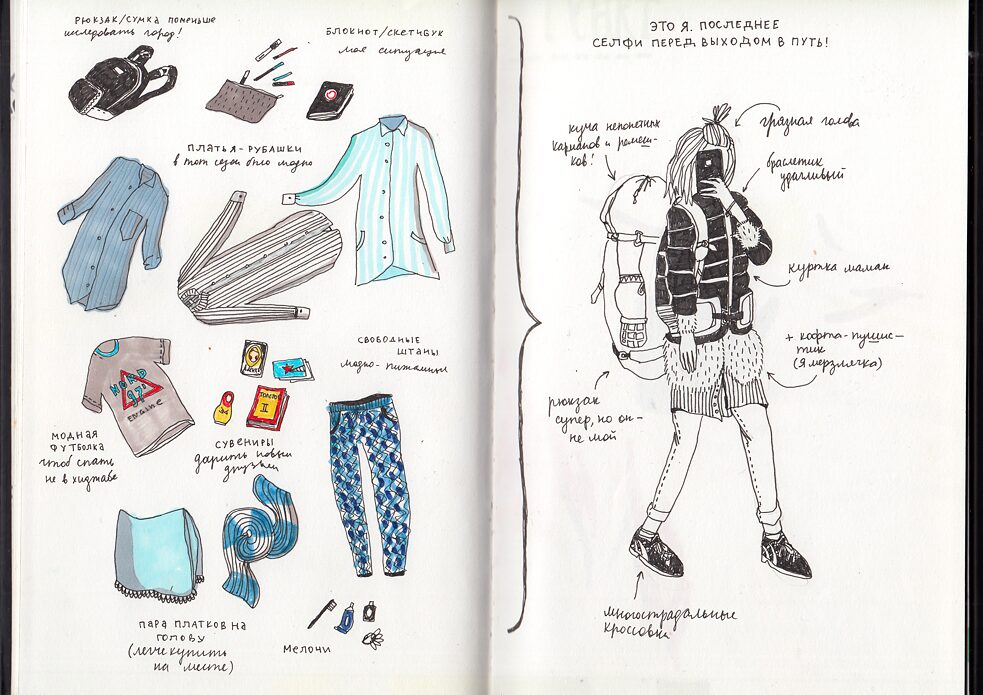 РЮКЗАК/СУМКА ПОМЕНЬШЕ
исследовать город!
БЛОКНОТ/СКЕТЧБУК
моя ситуация
ПЛАТЬЯ-РУБАШКИ
в тот сезон было модно
МОДНАЯ
ФУТБОЛКА
чтоб спать
не в хиджабе
СУВЕНИРЫ
дарить новым
друзьям
ТОЛСТОЙ
II
СВОБОДНЫЕ
ШТАНЫ
модно-пижамные
ПАРА ПЛАТКОВ НА
ГОЛОВУ
(легче купить
на месте)
мелочи
ЭТО Я. ПОСЛЕДНЕЕ
СЕЛФИ ПЕРЕД ВЫХОДОМ В ПУТЬ!
куча непонятных
карманов и ремеш-
ков!
грязная голова
браслетик
удачливый
куртка маман
+ кофта-пушис-
тик
(Я мерзлячка)
рюкзак
супер, но он-
не мой
многострадальные
кроссовки